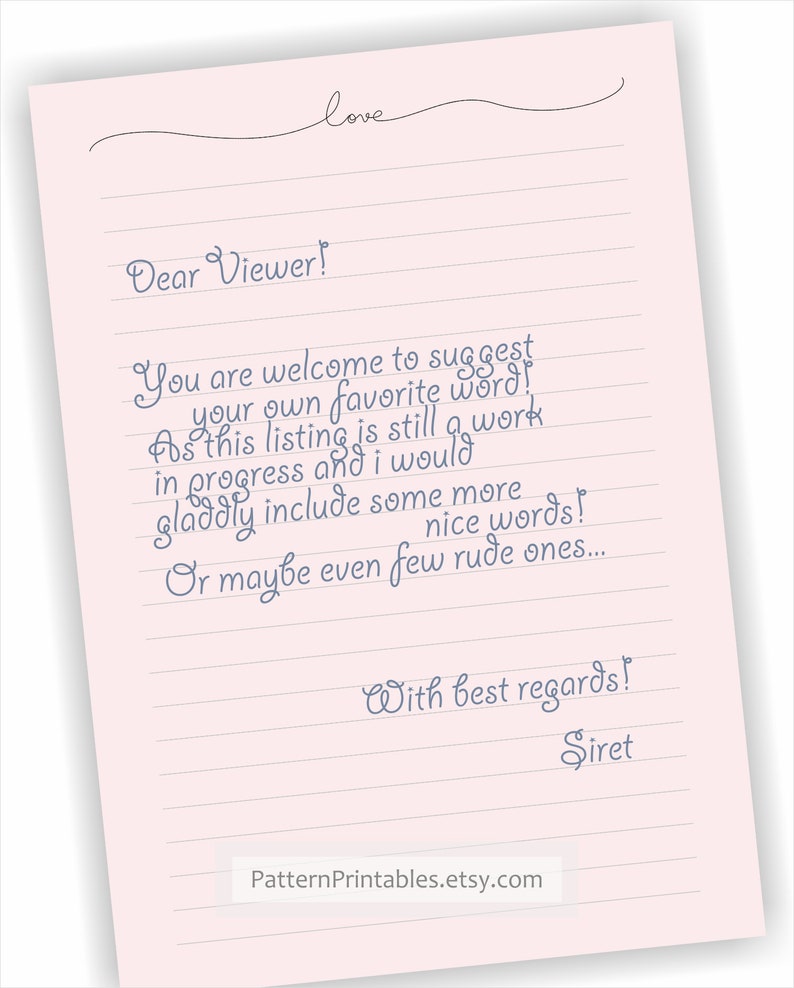 love
Dear Viewer!
You are welcome to suggest
your own favorite word!
As this listing is still a work
in progress and i would
gladdly include some more
nice words!
Or maybe even few rude ones...
With best regards!
Siret
PatternPrintables.etsy.com